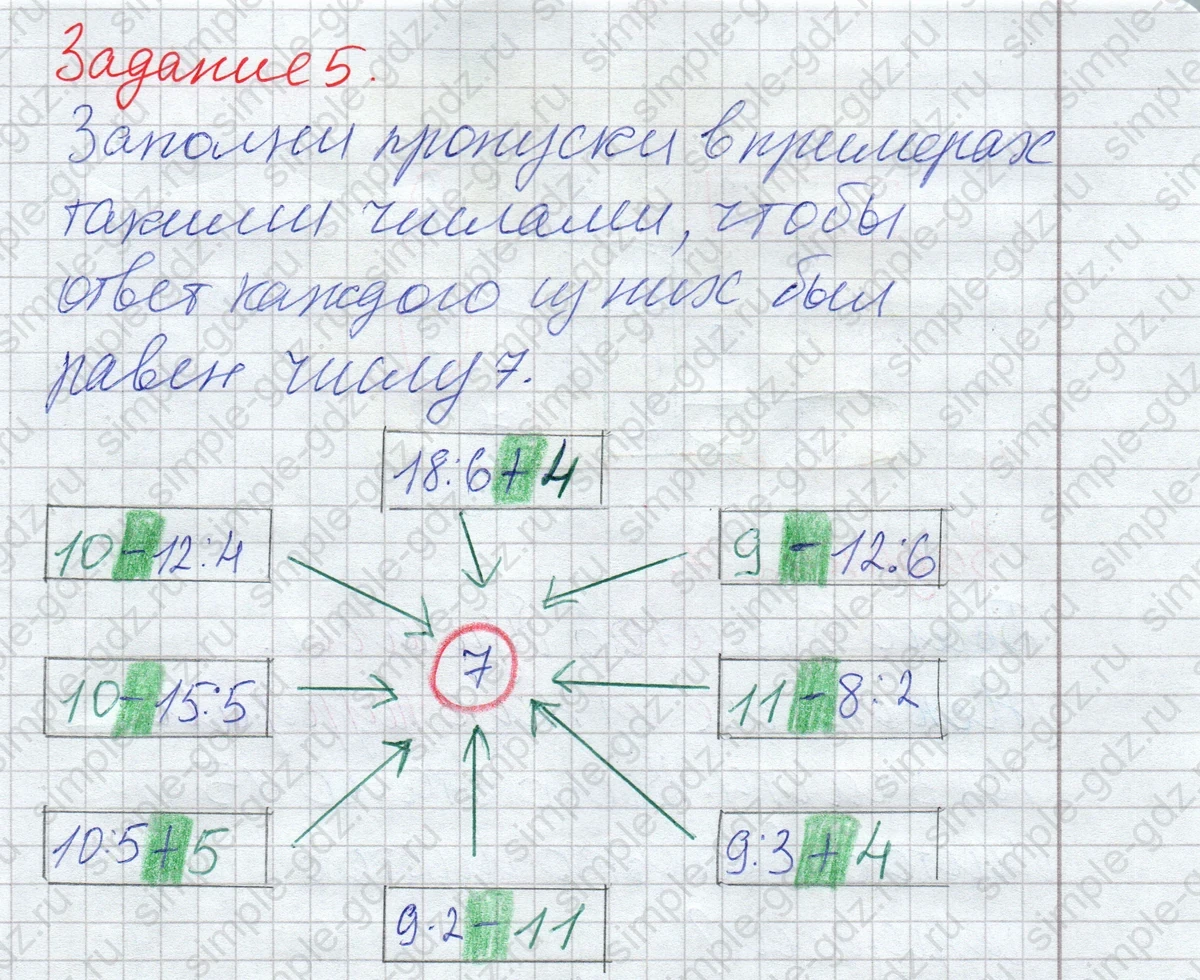 Задание 5.
Заполни пропуски в примерах
такими числами, чтобы
ответ каждого из них был
равен числу 7.
18:6+4
10-12:4
9-12:6
7
10-15:5
11-8:2
10:5+5
9:3+4
9·2-11
simple-gdz.ru